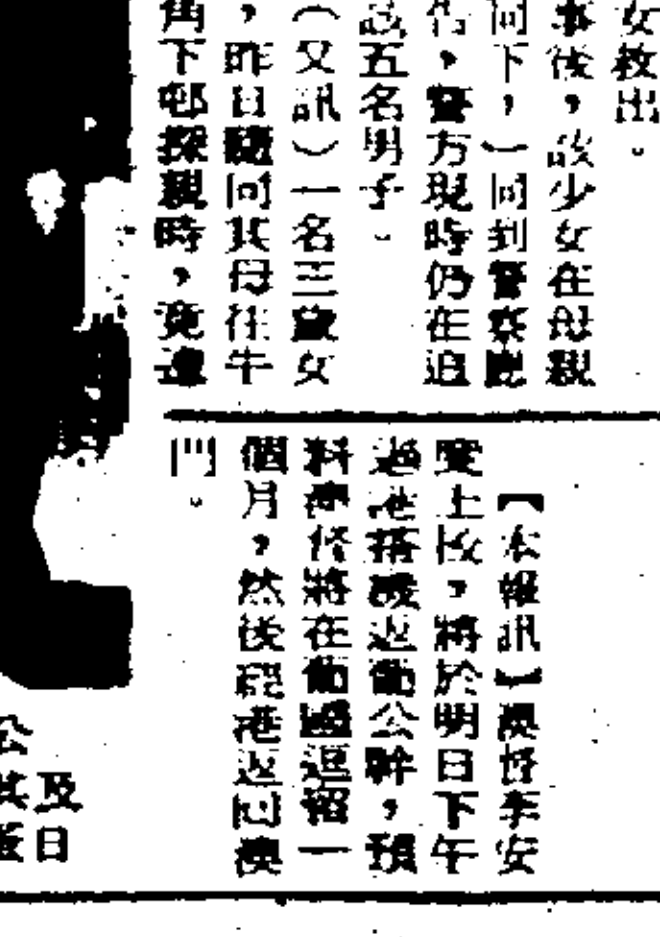 女救出。
事後,該少女在母親
同下,一同到警察廳
,警方現時仍在追
該五名男子。
(又訊)一名三歲女
,昨日隨同其母往牛
角下邨探親時,竟遭
【本報訊】澳督李安
度上校,將於明日下午
過港搭機返葡公幹,預
料澳督將在葡國逗留一
個月,然後經港返回澳
門。
及日
公其